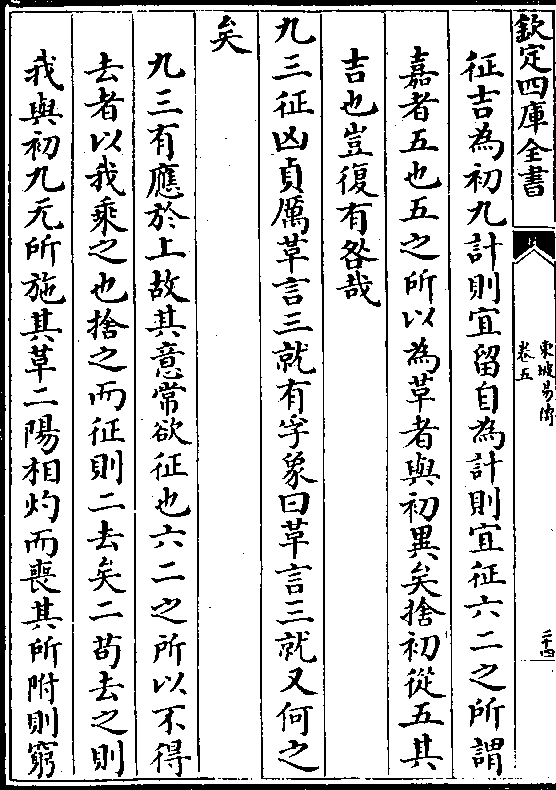 欽定四庫全書
東坡易傳
卷五
二十四
征吉為初九計則宜留自為計則宜征六二之所謂
嘉者五也五之所以為革者與初異矣捨初從五其
吉也豈復有咎哉
九三征凶貞厲革言三就有孚象曰革言三就又何之
矣
九三有應於上故其意常欲征也六二之所以不得
去者以我乘之也捨之而征則二去矣二苟去之則
我與初九无所施其革二陽相灼而喪其所附則窮